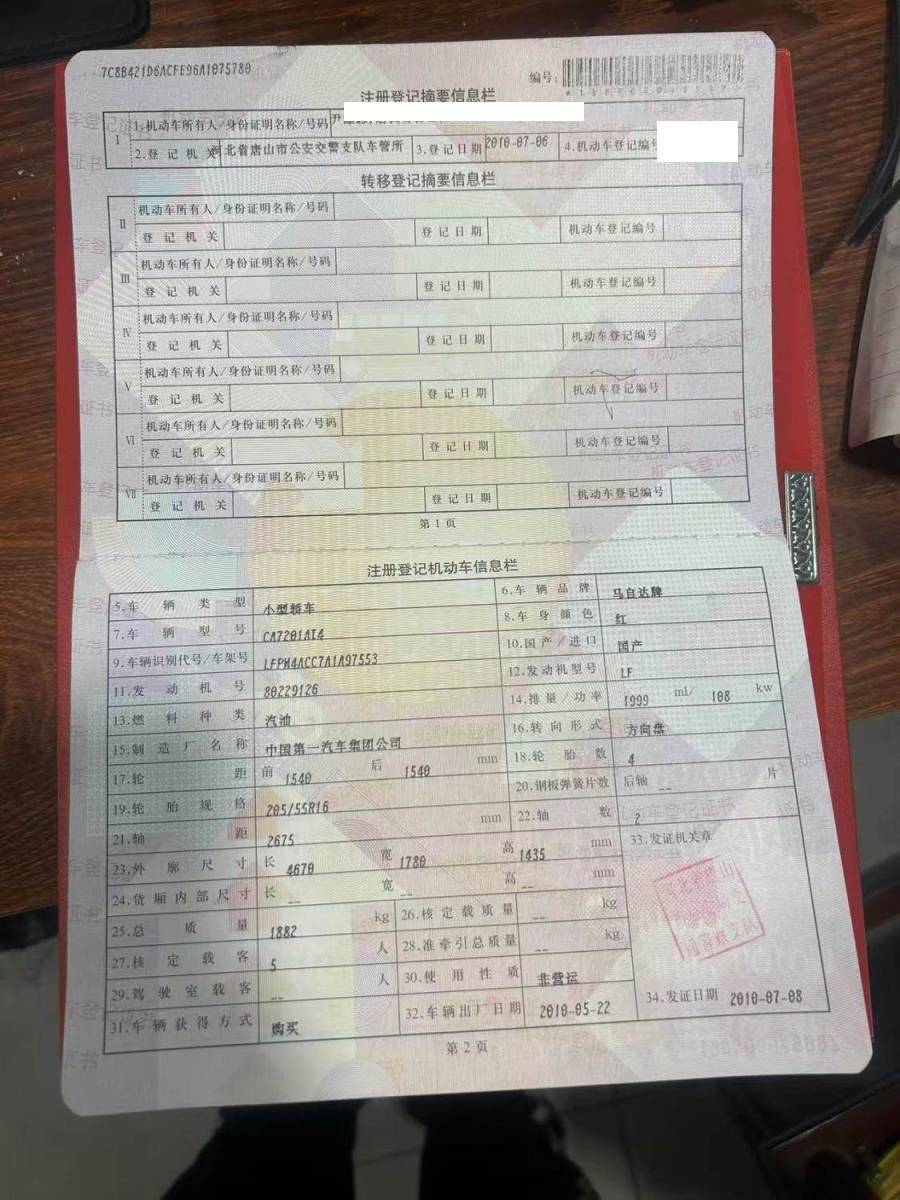 7C8B421D6ACFE96A1075780
编号:
注册登记摘要信息栏
I 1.机动车所有人/身份证明名称/号码 尹
2.登记机关 河北省唐山市公安交警支队车管所 3.登记日期 2010-07-06 4.机动车登记编号
转移登记摘要信息栏
II 机动车所有人/身份证明名称/号码
登记机关 登记日期 机动车登记编号
III 机动车所有人/身份证明名称/号码
登记机关 登记日期 机动车登记编号
IV 机动车所有人/身份证明名称/号码
登记机关 登记日期 机动车登记编号
V 机动车所有人/身份证明名称/号码
登记机关 登记日期 机动车登记编号
VI 机动车所有人/身份证明名称/号码
登记机关 登记日期 机动车登记编号
VII 机动车所有人/身份证明名称/号码
登记机关 登记日期 机动车登记编号
第1页
注册登记机动车信息栏
5.车辆类型 小型轿车 6.车辆品牌 马自达牌
7.车辆型号 CA7201AT4 8.车身颜色 红
9.车辆识别代号/车架号 LFPM4ACC7A1A97553 10.国产/进口 国产
11.发动机号 80229126 12.发动机型号 LF
13.燃料种类 汽油 14.排量/功率 1999 ml/ 108 kw
15.制造厂名称 中国第一汽车集团公司 16.转向形式 方向盘
17.轮距 前 1540 后 1540 mm 18.轮胎数 4
19.轮胎规格 205/55R16 20.钢板弹簧片数 后轴 -- 片
21.轴距 2675 mm 22.轴数 2
23.外廓尺寸 长 4670 宽 1780 高 1435 mm 33.发证机关章
24.货厢内部尺寸 长 -- 宽 -- 高 -- mm
25.总质量 1882 kg 26.核定载质量 -- kg
27.核定载客 5 人 28.准牵引总质量 -- kg
29.驾驶室载客 -- 人 30.使用性质 非营运
31.车辆获得方式 购买 32.车辆出厂日期 2010-05-22 34.发证日期 2010-07-08
第2页